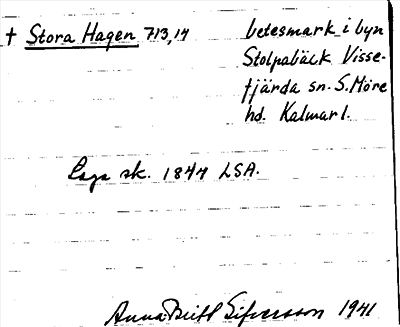 † Stora Hagen 713,14 betesmark i byn
Stolpabäck Visse-
fjärda sn. S. Möre
hd. Kalmar l.
Laga sk. 1844 LSA.
Anna Britt Sifversson 1941